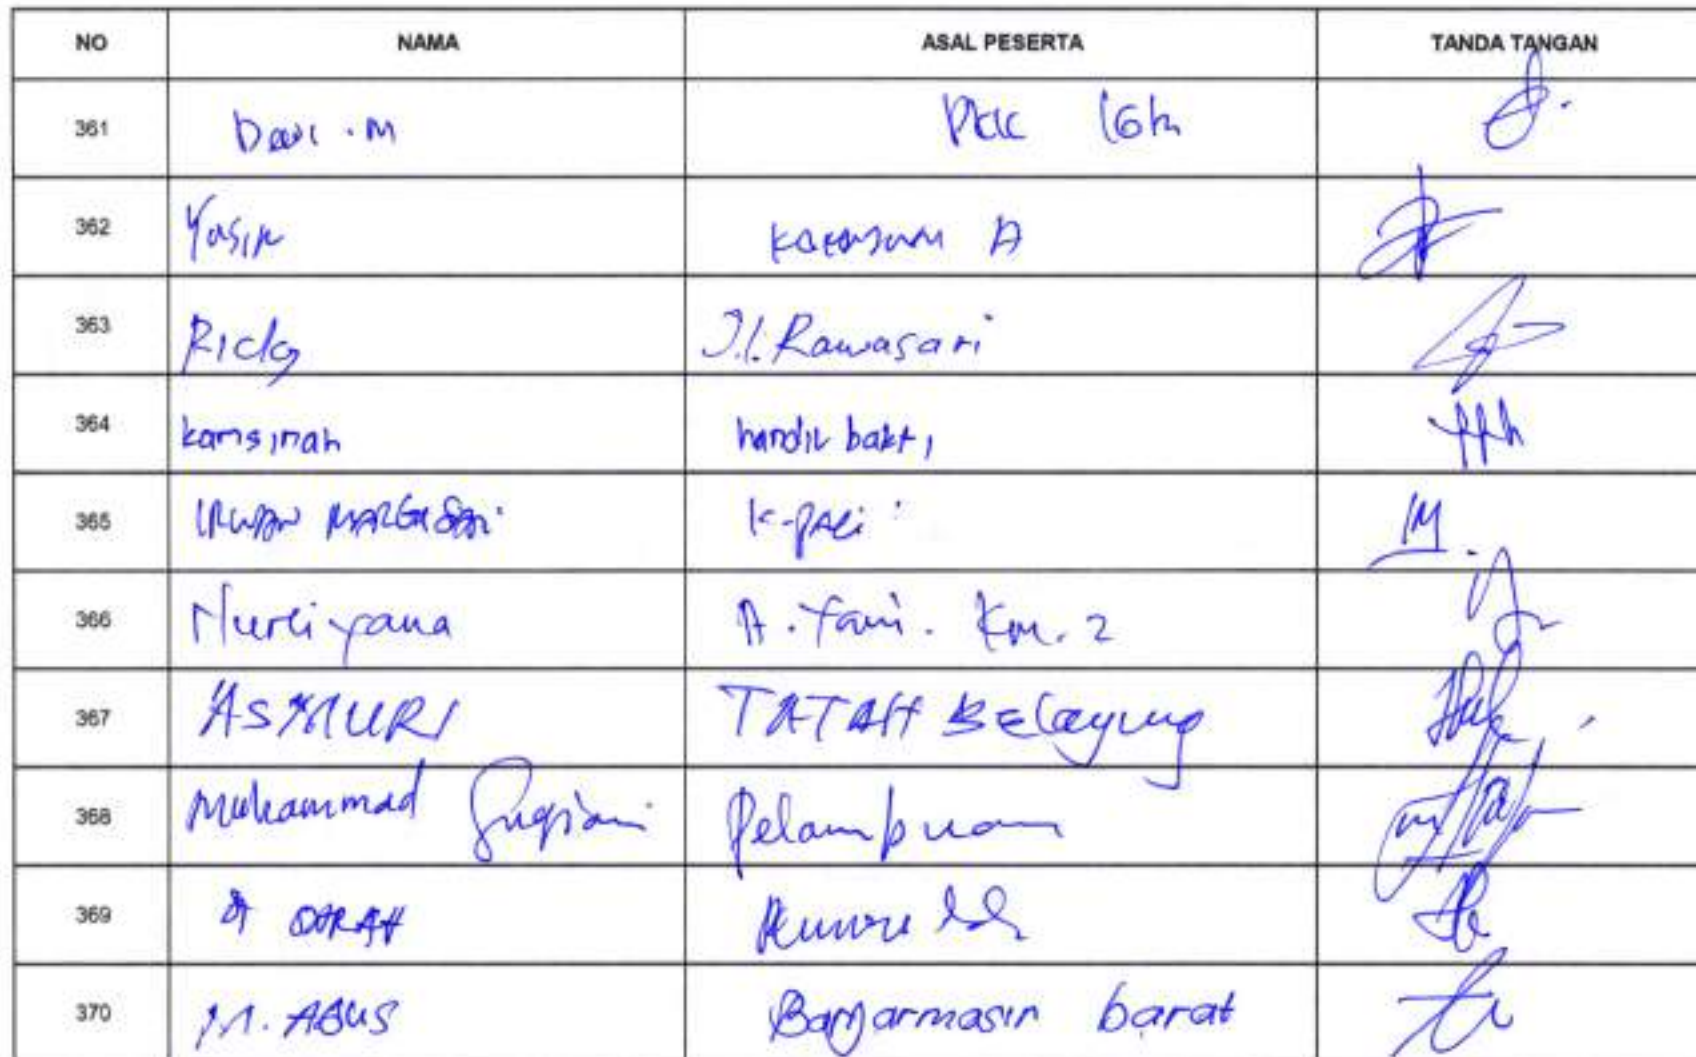 NO NAMA ASAL PESERTA TANDA TANGAN
361 Dewi .M PKK
362 Yasir A
363 Ricky Jl. Rawasari
364 kamsinah handil bakti
365 IRWAN MARGASARi
366 Nurliyana A. Yani. Km. 2
367 ASMURI TATAH BElayung
368 Muhammad Sugiani Pelambuan
369
370 M. AGUS Banjarmasin barat